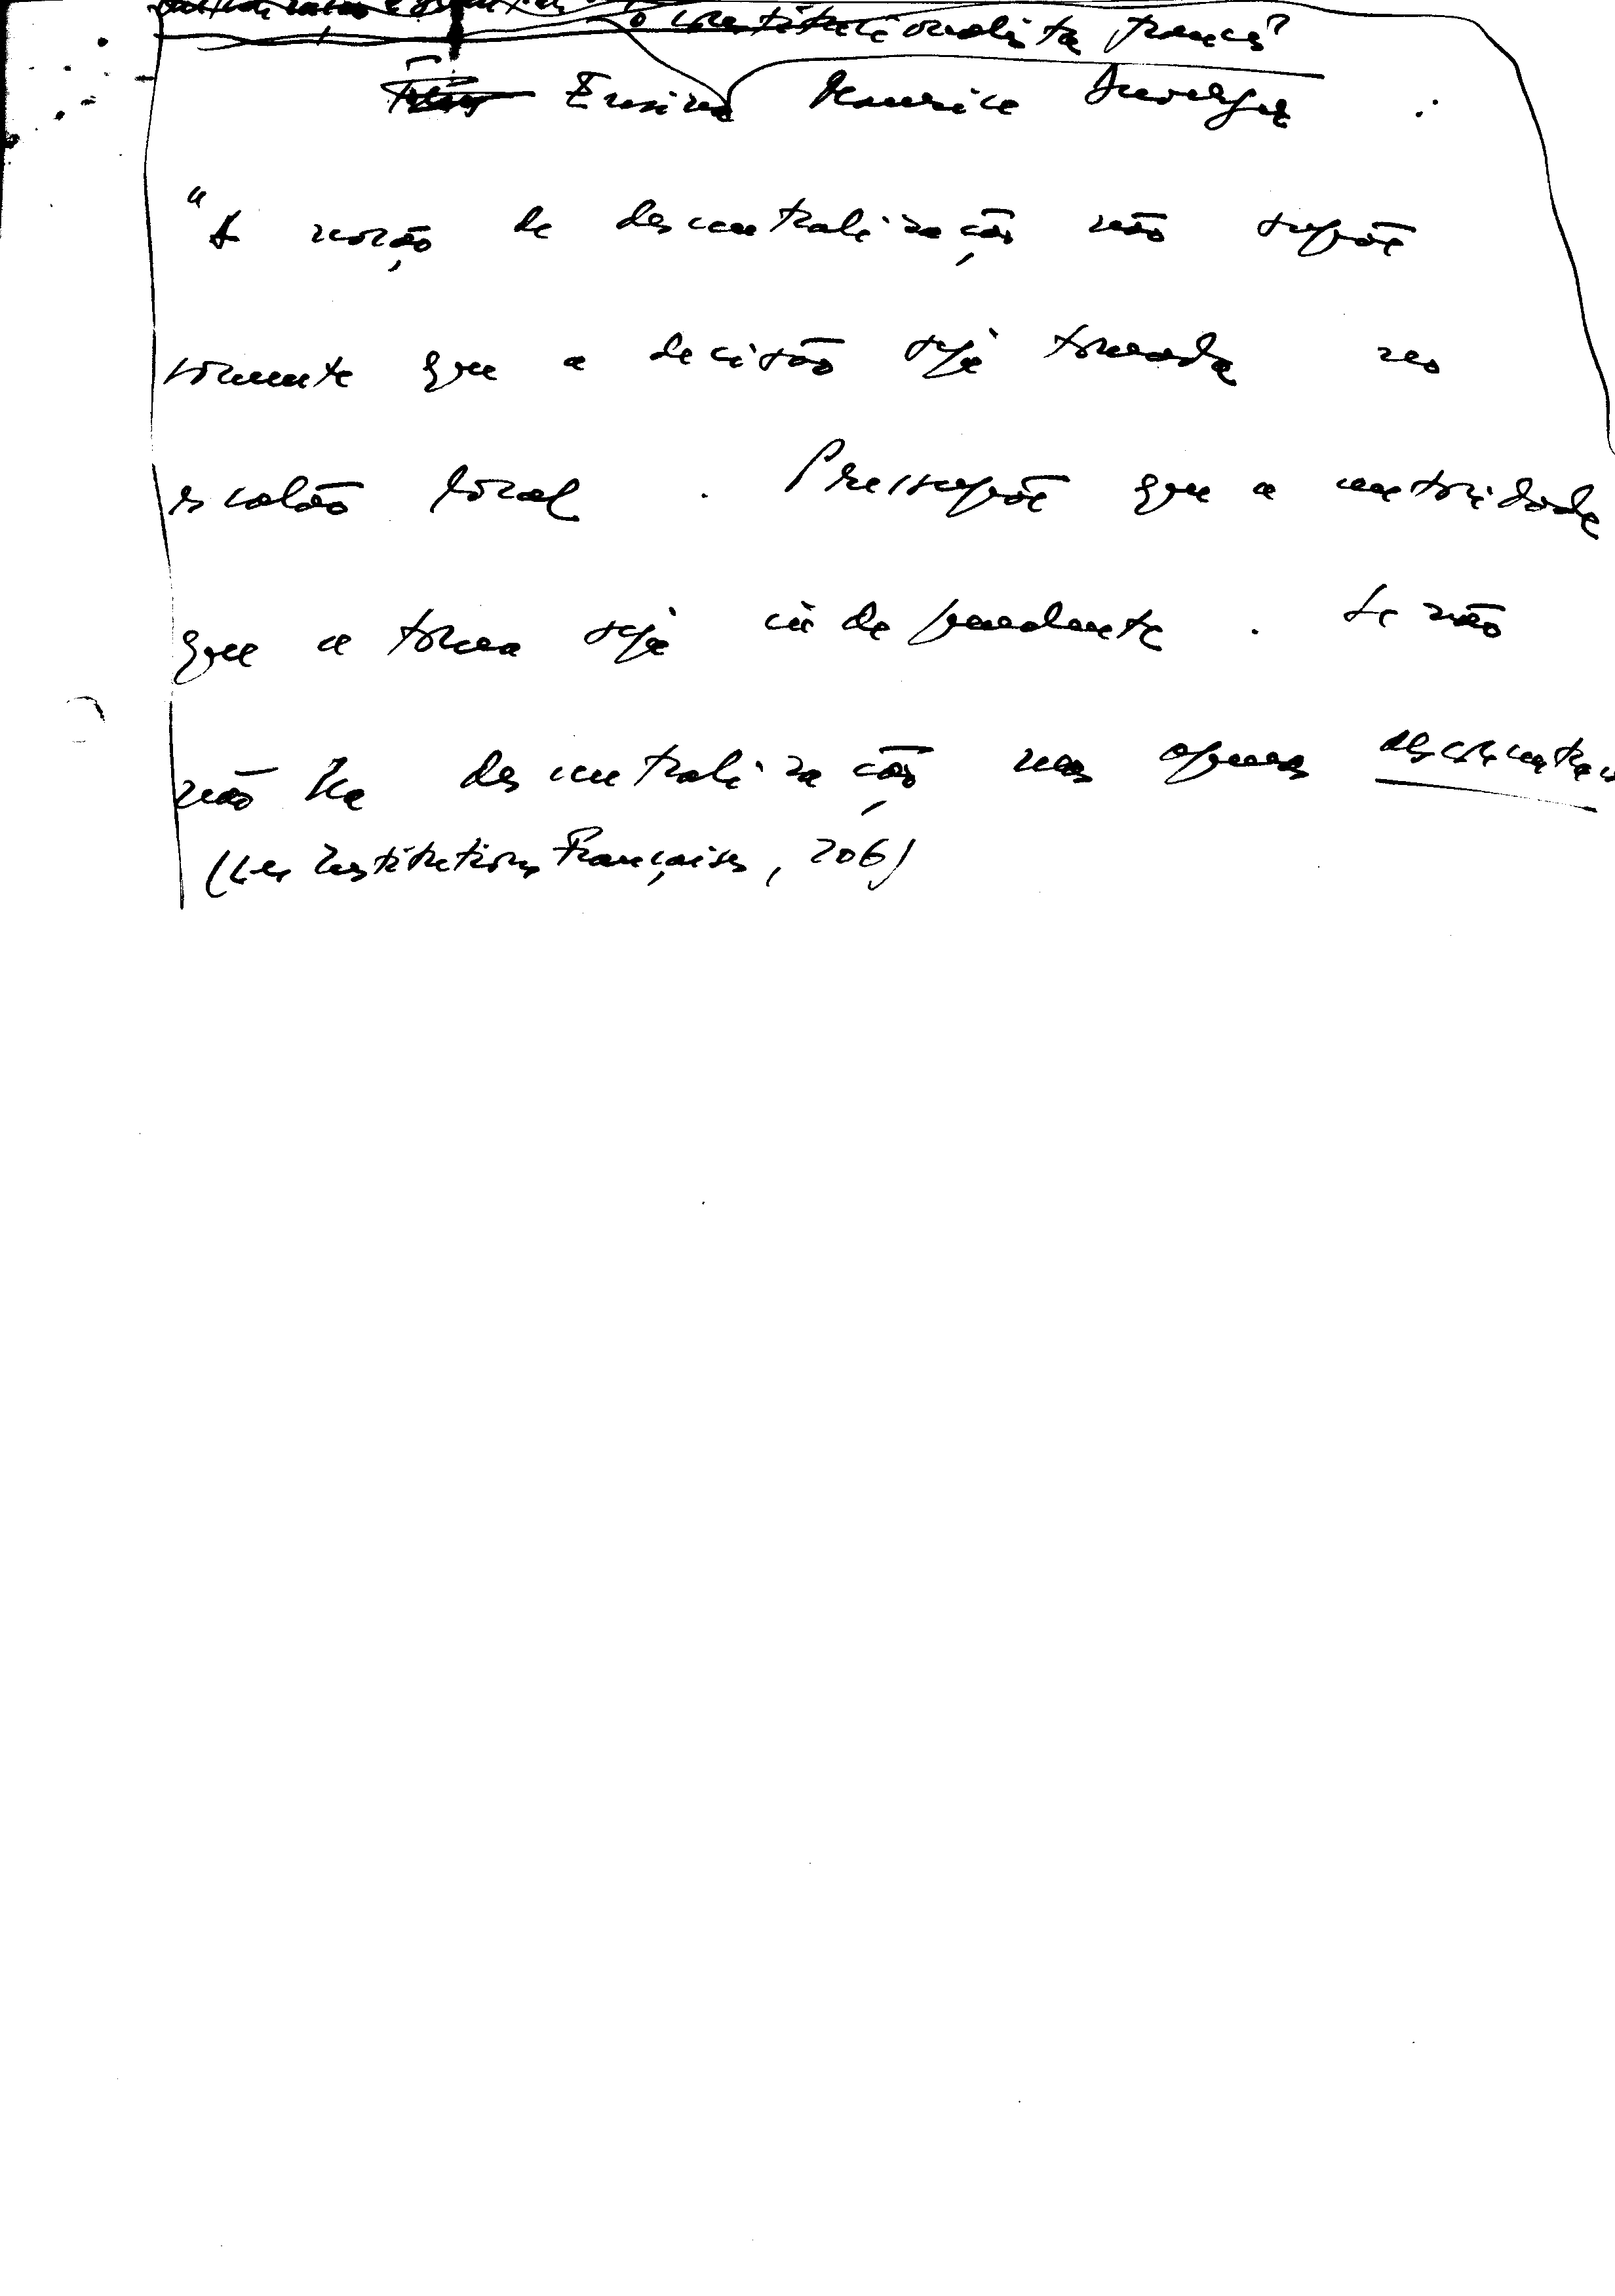 o constitucionalista francês
Ensina Maurice Duverger :
"A noção de descentralização não supõe
somente que a decisão seja tomada no
escalão local . Pressupõe que a autoridade
que a toma seja independente . Se não
não há descentralização mas apenas desconcentra
(Les Institutions Françaises, 206)